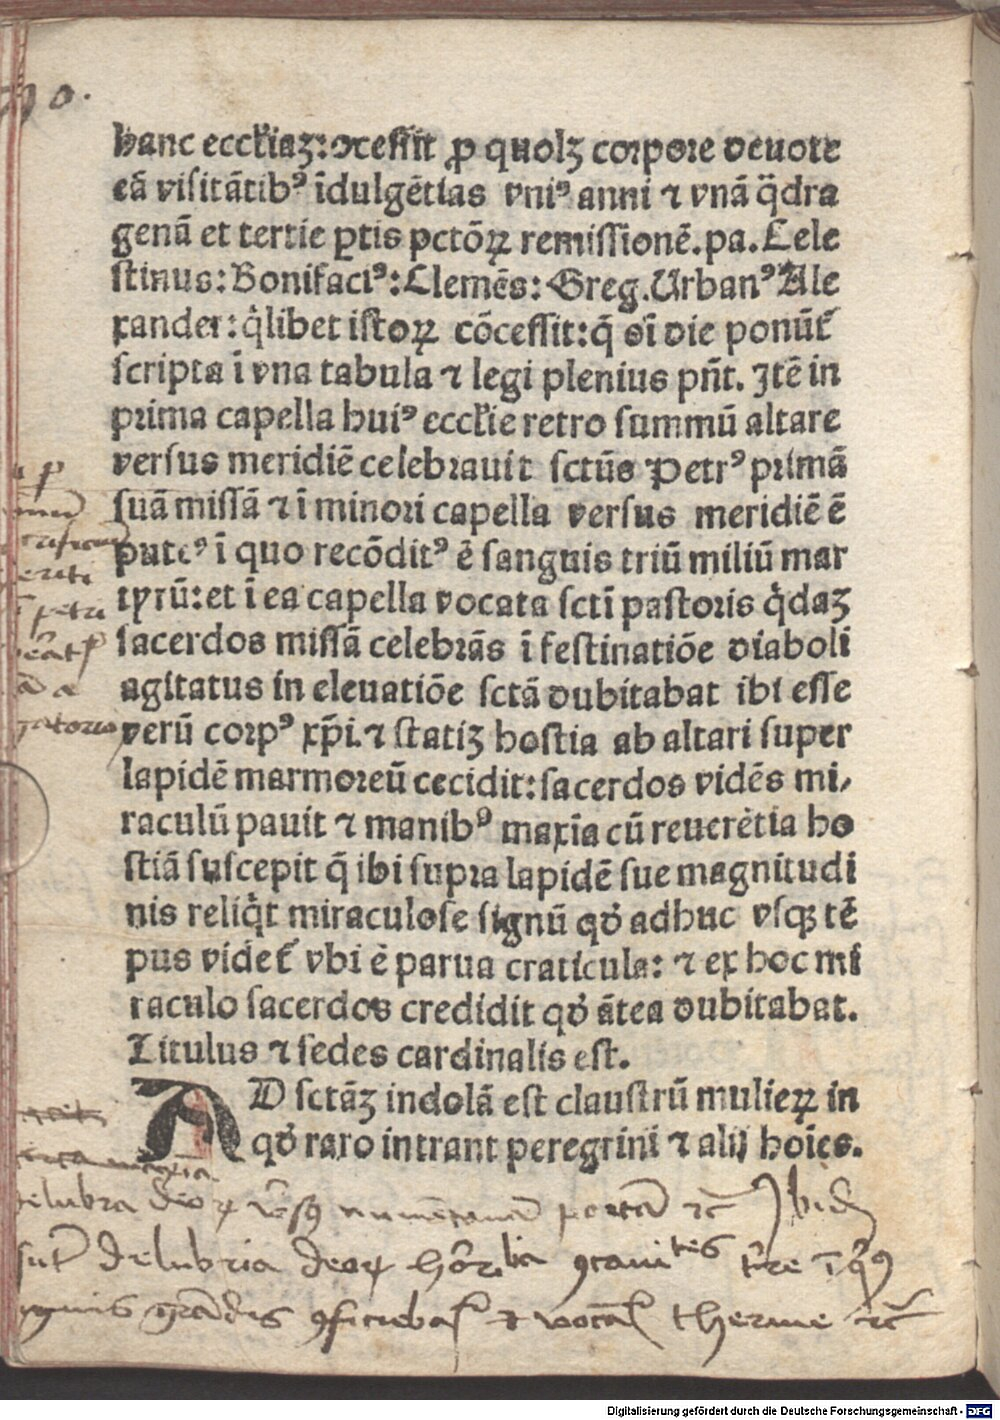 hanc eccl'iaz: ɔcessit ꝓ quolꝫ corpore deuote
eā visitātibꝰ īdulgētias vniꝰ anni ⁊ vnā q̈dra
genā et tertie ꝑtis pctōꝝ remissionē. pa. Cele
stinus: Bonifaciꝰ: Clemēs: Greg. Urbanꝰ Ale
xander: q̇libet istoꝝ cōcessit: q̄ oī die ponūt᷑
scripta ī vna tabula ⁊ legi plenius pn̄t. Itē in
prima capella huiꝰ eccl'ie retro summū altare
versus meridiē celebrauit sctūs Petrꝰ primā
suā missā ⁊ ī minori capella versus meridiē ē
puteꝰ ī quo recōditꝰ ē sanguis triū miliū mar
tyrū: et ī ea capella vocata sctī pastoris q̇daꝫ
sacerdos missā celebrās ī festinatiōe diaboli
agitatus in eleuatiōe sctā dubitabat ibi esse
verū corpꝰ xp̄i. ⁊ statiꝫ hostia ab altari super
lapidē marmoreū cecidit: sacerdos vidēs mi,
raculū pauit ⁊ manibꝰ maxīa cū reuerētia ho
stiā suscepit q̄ ibi supra lapidē sue magnitudi
nis reliq̇t miraculose signū qđ adhuc vsqꝫ tē
pus videt᷑ vbi ē parua craticula: ⁊ ex hoc mi
raculo sacerdos credidit qđ ātea dubitabat.
Titulus ⁊ sedes cardinalis est.
AD sctāꝫ indolā est claustrū mulieꝝ in
qđ raro intrant peregrini ⁊ alij hoīes.
delubra deoꝝ v̄sꝰ numētanā portā ⁊c̄ Ibid
sūt delubria deoꝝ hor̄ibilia ꝯcauitates t̄re ī qͥbꝰ
ignis grādis ꝯficiebat᷑ ⁊ vocāt᷑ therme ⁊c̄
Digitalisierung gefördert durch die Deutsche Forschungsgemeinschaft - DFG